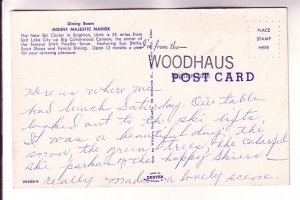 Dining Room
MOUNT MAJESTIC MANOR
The New Ski Chalet in Brighton, Utah is 25 miles from
Salt Lake City up Big Cottonwood Canyon, the center of
the famous Utah Powder Snow. Featuring Sun Decks,
Sport Shops and Family Dining. Open 12 months a year
for your relaxing pleasure.
PLACE
STAMP
HERE
from the—
WOODHAUS
POST CARD
Here is where we
had lunch Saturday. Our table
looked out to the ski lifts.
It was a beautiful day, the
snow, the green trees, the colorful
ski parkas & the happy skiers –
really made a lovely scene.
DEXTER